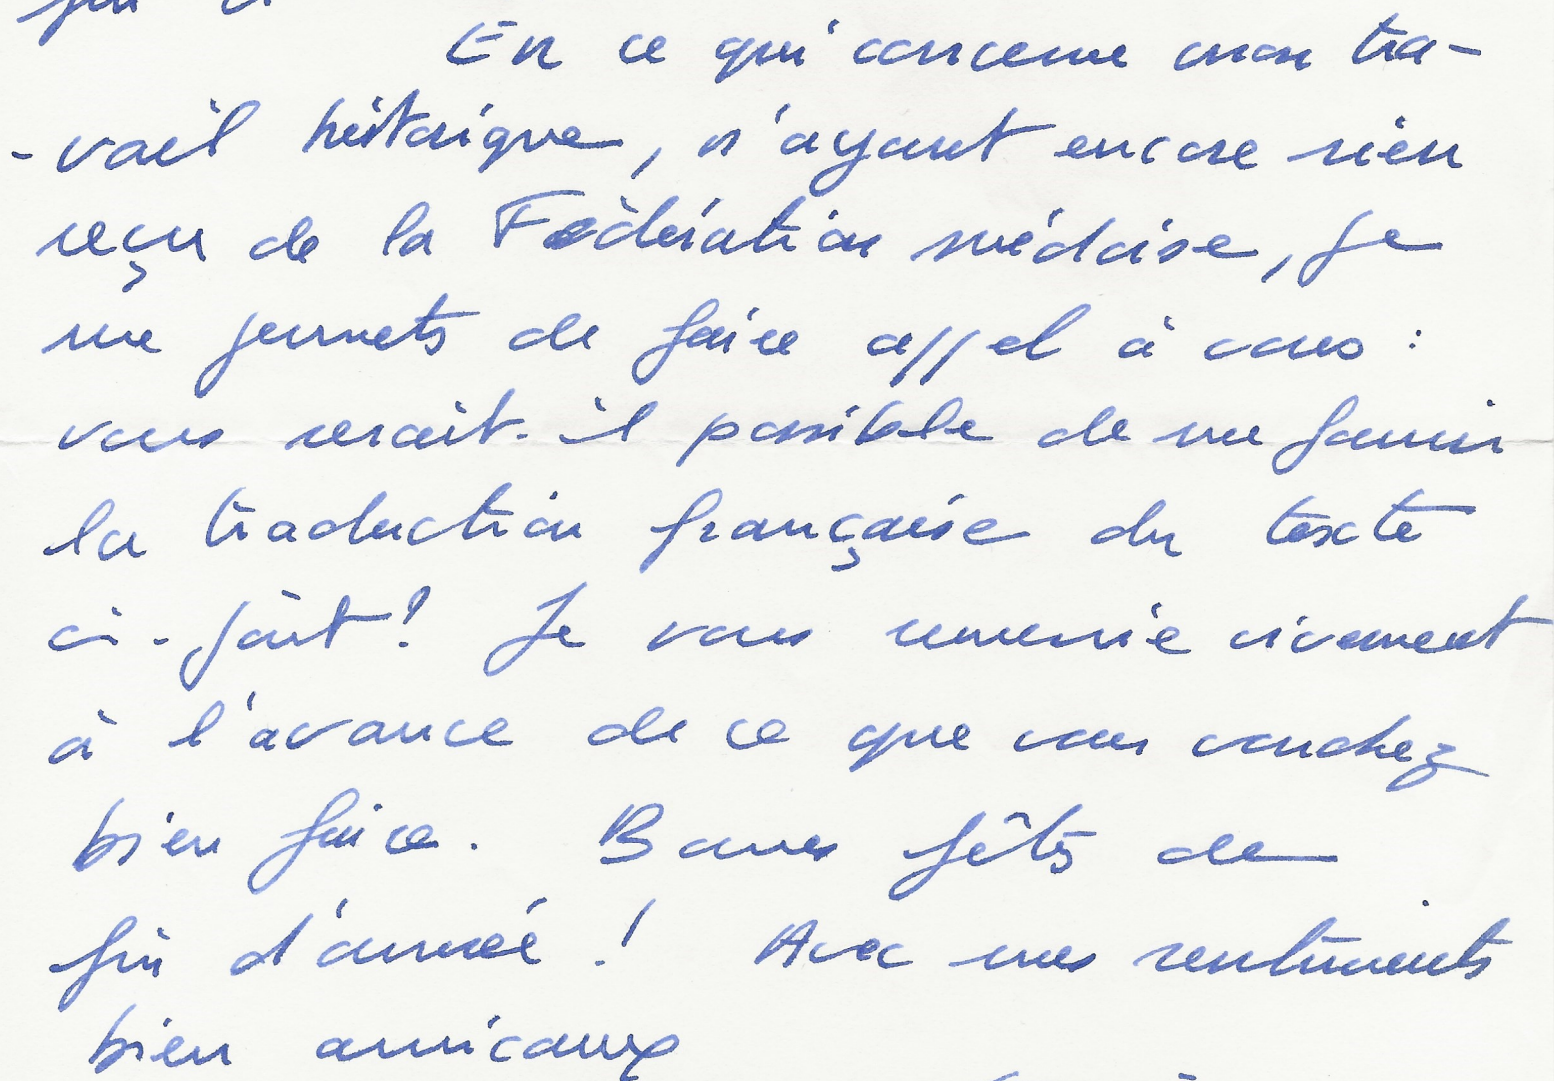 En ce qui concerne mon tra-
-vail historique, n'ayant encore rien
reçu de la Fédération suédoise, je
me permets de faire appel à vous :
vous serait-il possible de me fournir
la traduction française du texte
ci-joint ? Je vous remercie vivement
à l'avance de ce que vous voudrez
bien faire. Bonnes fêtes de
fin d'année ! Avec mes sentiments
bien amicaux